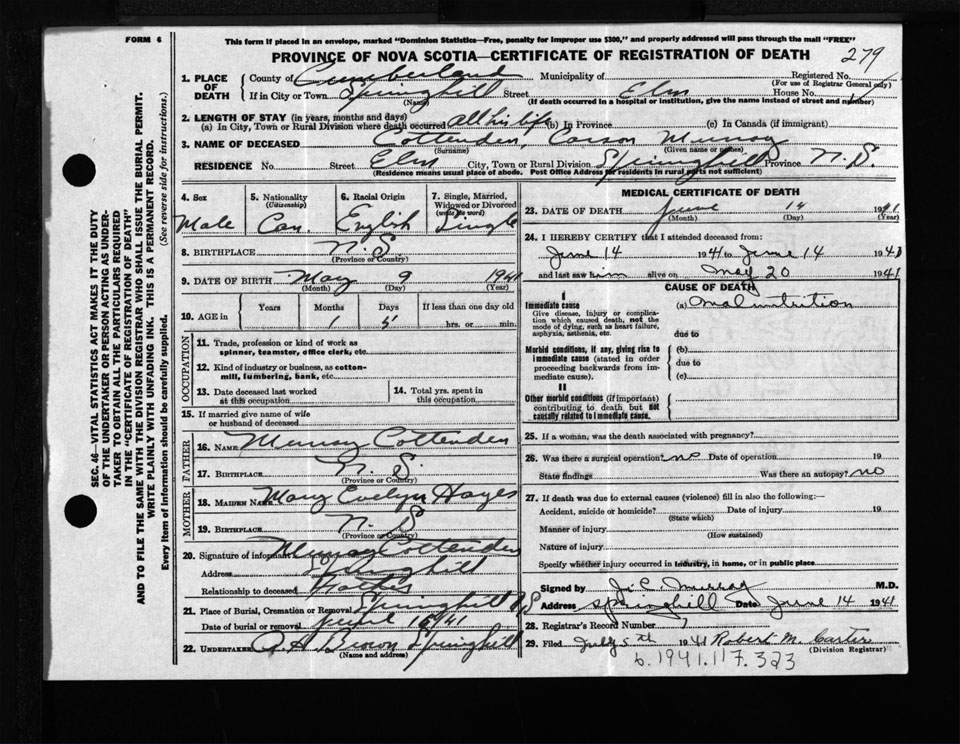 FORM 6
This form if placed in an envelope, marked "Dominion Statistics—Free, penalty for improper use $300," and properly addressed will pass through the mail "FREE"
PROVINCE OF NOVA SCOTIA—CERTIFICATE OF REGISTRATION OF DEATH
279
1. PLACE OF DEATH
County of Cumberland Municipality of Registered No.
(For use of Registrar General only)
If in City or Town Springhill Street Elm House No.
(Name) (If death occurred in a hospital or institution, give the name instead of street and number)
2. LENGTH OF STAY (in years, months and days)
(a) In City, Town or Rural Division where death occurred All his life (b) In Province (c) In Canada (if immigrant)
3. NAME OF DECEASED Cottenden, Carson Murray
(Surname) (Given name or names)
RESIDENCE No. Street Elm City, Town or Rural Division Springhill Province N.S.
(Residence means usual place of abode. Post Office Address for residents in rural parts not sufficient)
4. Sex
Male
5. Nationality
(Citizenship)
Can.
6. Racial Origin
English
7. Single, Married, Widowed or Divorced
(write the word)
Single
8. BIRTHPLACE N.S
(Province or Country)
9. DATE OF BIRTH May 9 1941
(Month) (Day) (Year)
10. AGE in Years Months Days If less than one day old
1 5 hrs. or min.
OCCUPATION
11. Trade, profession or kind of work as spinner, teamster, office clerk, etc.
12. Kind of industry or business, as cotton-mill, lumbering, bank, etc.
13. Date deceased last worked at this occupation
14. Total yrs. spent in this occupation
15. If married give name of wife or husband of deceased
FATHER
16. NAME Murray Cottenden
17. BIRTHPLACE N.S.
(Province or Country)
MOTHER
18. MAIDEN NAME Mary Evelyn Hayes
19. BIRTHPLACE N.S
(Province or Country)
20. Signature of informant Murray Cottenden
Address Springhill
Relationship to deceased Father
21. Place of Burial, Cremation or Removal Springhill N.S
Date of burial or removal June 16 1941
22. UNDERTAKER A.H. Brown Springhill
(Name and address)
MEDICAL CERTIFICATE OF DEATH
23. DATE OF DEATH June 14 1941
(Month) (Day) (Year)
24. I HEREBY CERTIFY that I attended deceased from:
June 14 1941 to June 14 1941
and last saw him alive on May 20 1941
CAUSE OF DEATH
I
Immediate cause
Give disease, injury or complication which caused death, not the mode of dying, such as heart failure, asphyxia, asthenia, etc.
(a) Malnutrition
due to
Morbid conditions, if any, giving rise to immediate cause (stated in order proceeding backwards from immediate cause).
(b)
due to
(c)
II
Other morbid conditions (if important) contributing to death but not causally related to immediate cause.
25. If a woman, was the death associated with pregnancy?
26. Was there a surgical operation? no Date of operation 19
State findings Was there an autopsy? no
27. If death was due to external causes (violence) fill in also the following:—
Accident, suicide or homicide? Date of injury 19
(State which)
Manner of injury
(How sustained)
Nature of injury
Specify whether injury occurred in industry, in home, or in public place
Signed by J. E. Murray M.D.
Address Springhill Date June 14 1941
28. Registrar's Record Number 7
29. Filed July 5th 1941 Robert M. Carter
(Division Registrar)
b.1941.117.323
SEC. 46—VITAL STATISTICS ACT MAKES IT THE DUTY
OF THE UNDERTAKER OR PERSON ACTING AS UNDER-
TAKER TO OBTAIN ALL THE PARTICULARS REQUIRED
IN THE "CERTIFICATE OF REGISTRATION OF DEATH"
AND TO FILE THE SAME WITH THE DIVISION REGISTRAR WHO SHALL ISSUE THE BURIAL PERMIT.
WRITE PLAINLY WITH UNFADING INK. THIS IS A PERMANENT RECORD.
Every item of information should be carefully supplied. (See reverse side for instructions.)